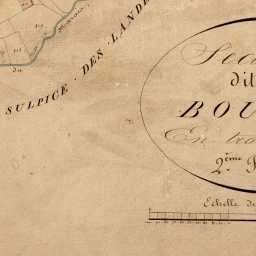 SULPICE · DES · LANDE
Sec
dit
BOU
En tro
2ème
Echelle de